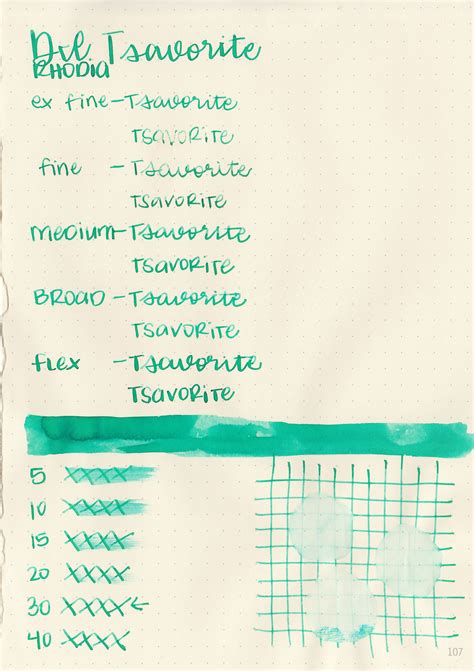 Dvl Tsavorite
RHODIA
ex fine - Tsavorite
TSAVORITE
fine - Tsavorite
TSAVORITE
medium - Tsavorite
TSAVORITE
BROAD - Tsavorite
TSAVORITE
flex - Tsavorite
TSAVORITE
5 XXXX
10 XXXX
15 XXXX
20 XXXX
30 XXXX ←
40 XXXX
107